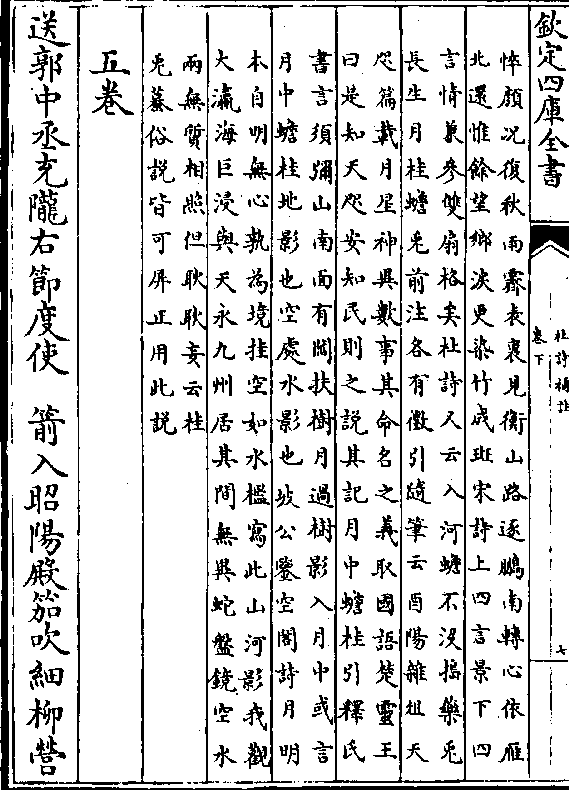 欽定四庫全書
杜詩補註
卷下
七
悴顔况復秋雨霽表裏見衡山路逐鵬南轉心依雁
北還惟餘望鄉淚更染竹成斑宋詩上四言景下四
言情兼參雙扇格矣杜詩又云入河蟾不没搗藥兔
長生月桂蟾兔前注各有徵引隨筆云酉陽雜俎天
咫篇載月星神異數事其命名之義取國語楚靈王
曰是知天咫安知民則之説其記月中蟾桂引釋氏
書言須彌山南面有閻扶樹月過樹影入月中或言
月中蟾桂地影也空處水影也坡公鑒空閣詩月明
本自明無心孰為境挂空如水檻寫此山河影我觀
大瀛海巨浸與天永九州居其間無異蛇盤鏡空水
兩無質相照但耿耿妄云桂
兔蟇俗説皆可屏正用此説
五卷
送郭中丞充隴右節度使 箭入昭陽殿笳吹細柳營